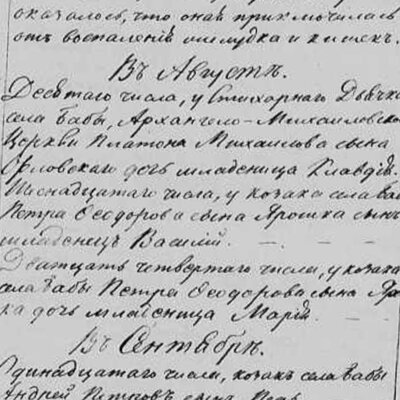 оказалось, что оная приключилась
отъ воспаленія желудка и кишекъ.
Въ Августѣ.
Десятаго числа, у Стихарнаго Дьячка
села Бабы, Архангело-Михаиловско
Церкви Платона Михаилова сына
Орловскаго дочь младеница Клавдія.
числа, у козака села Баб
Петра Ѳеодорова сына Ярошка сынъ
младенецъ Василій.
Дватцать четвертаго числа, у козака
села Бабы Петра Ѳеодорова сына Яро
ка дочь младеница Марія.
Въ Сентябрѣ.
Одинадцатаго числа, козакъ села Бабы
Андрей Петровъ сынъ